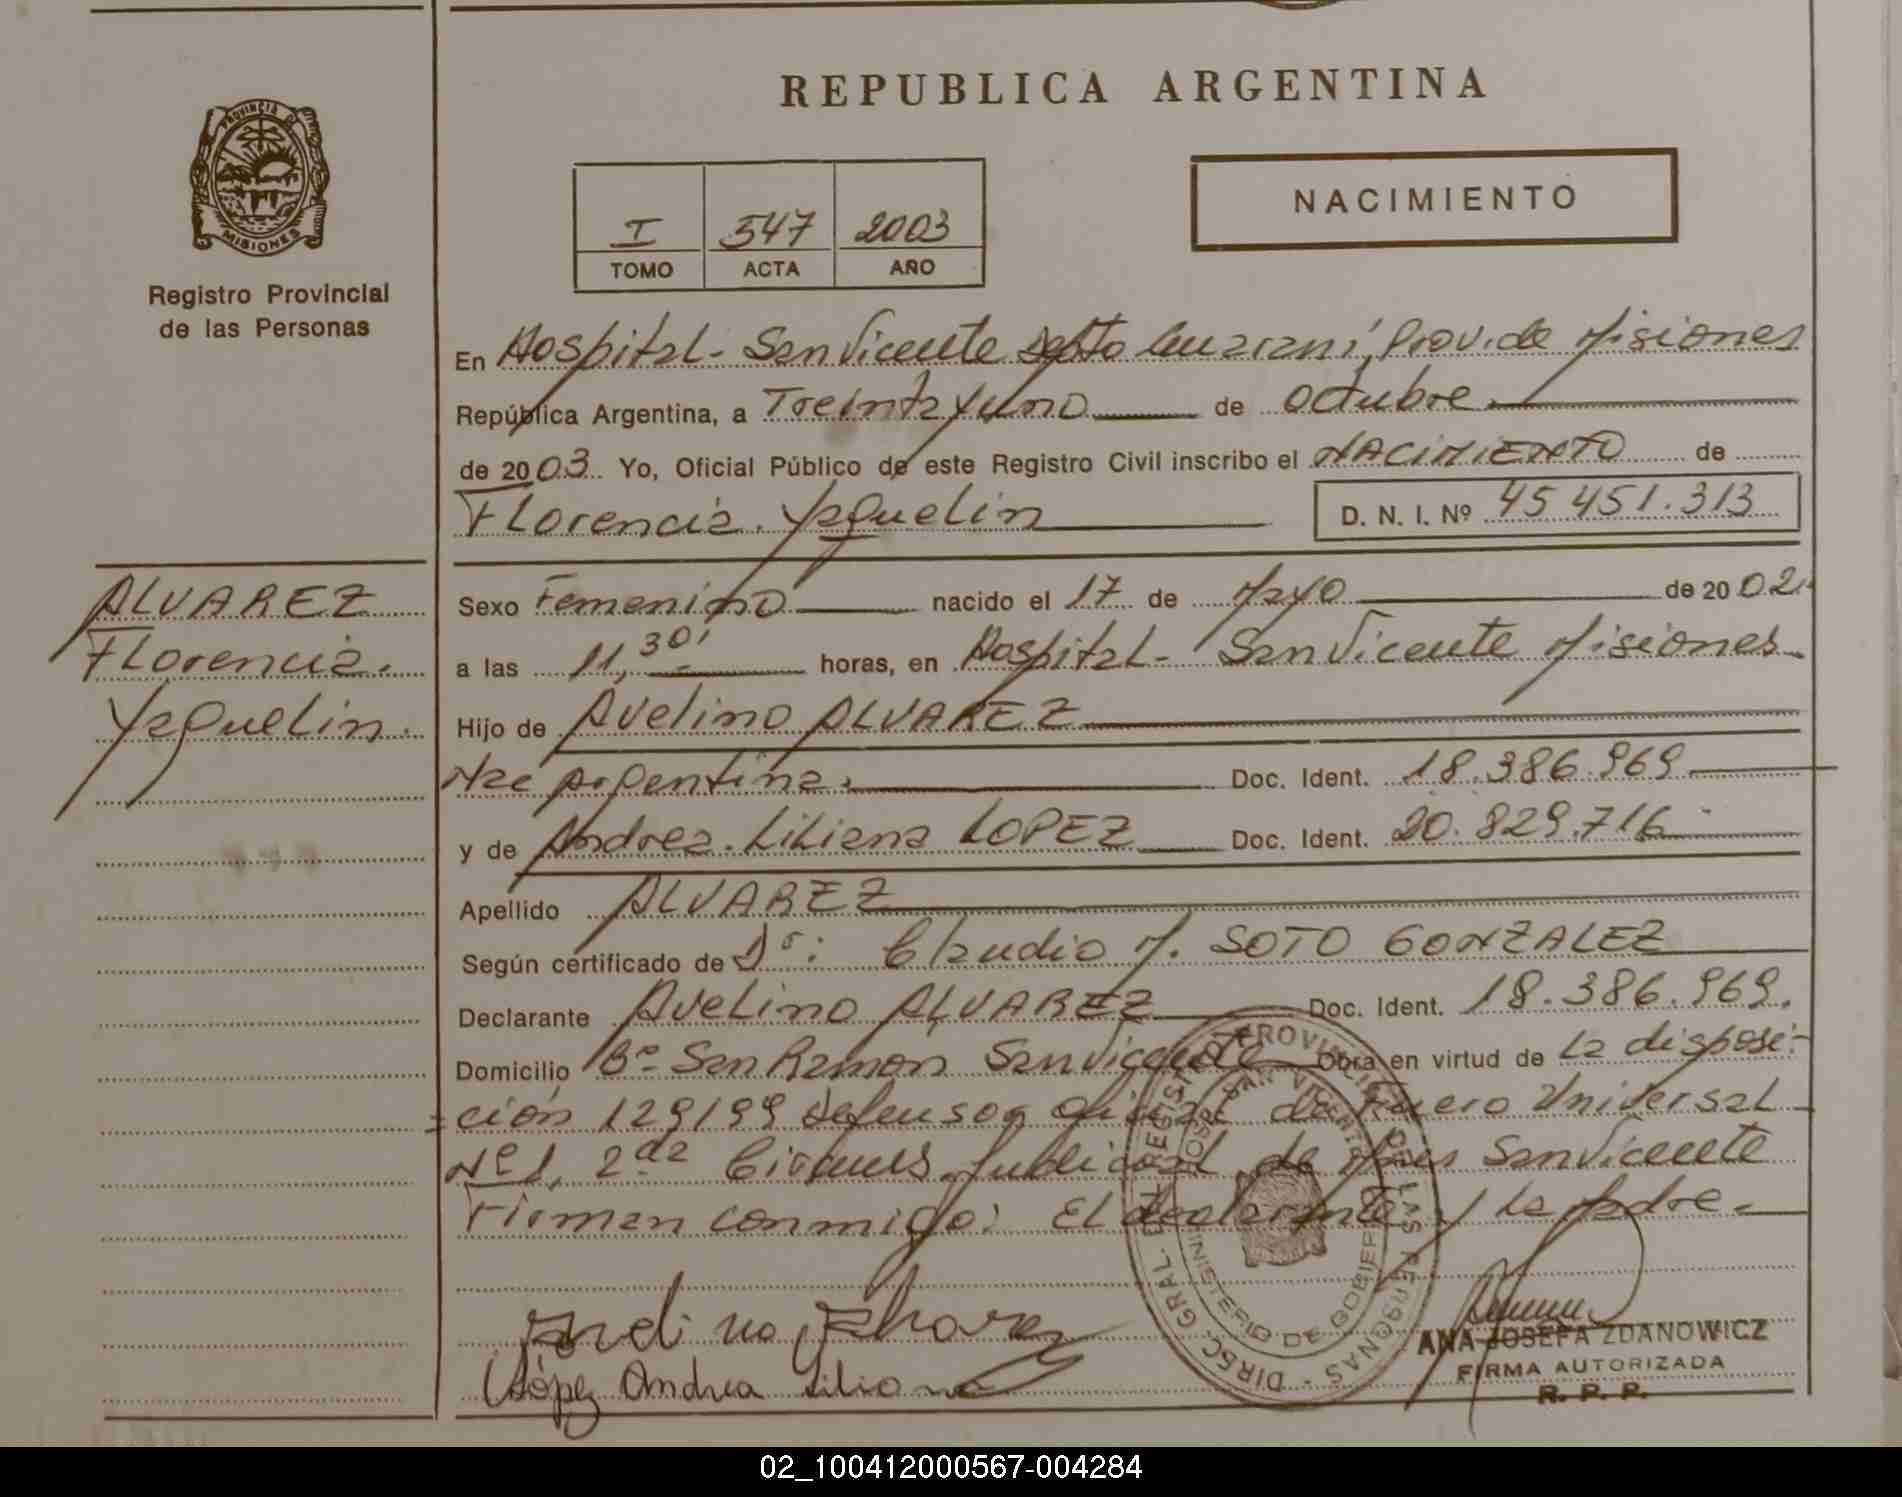 REPUBLICA ARGENTINA
PROVINCIA D
MISIONES
Registro Provincial
de las Personas
I 547 2003
TOMO ACTA AÑO
NACIMIENTO
En Hospital - San Vicente Dpto Guaraní, Prov. de Misiones
República Argentina, a Treinta y uno de octubre
de 2003 Yo, Oficial Público de este Registro Civil inscribo el NACIMIENTO de
Florencia Yaquelin D. N. I. Nº 45 451.313
ALVAREZ
Florencia.
Yaquelin.
Sexo Femenino nacido el 17 de Mayo de 2002.
a las 11,30' horas, en Hospital - San Vicente Misiones
Hijo de Avelino ALVAREZ
Nac Argentina. Doc. Ident. 18.386.969
y de Andrea. Liliana LOPEZ Doc. Ident. 20.829.716
Apellido ALVAREZ
Según certificado de Dr: Claudio M. SOTO GONZALEZ
Declarante Avelino ALVAREZ Doc. Ident. 18.386.969.
Domicilio Bº San Ramon San Vicente Obra en virtud de la disposi-
ción 129/99 Defensor oficial de Fuero Universal
Nº 1, 2da Judicial de San Vicente
Firman conmigo: El declarante y la Madre.
Avelino Alvarez
López Andrea Liliana
ANA JOSEFA ZDANOWICZ
FIRMA AUTORIZADA
R. P. P.
DIREC. GRAL. DEL REGISTRO PROVINCIAL DE LAS PERSONAS
MINISTERIO DE GOBIERNO
02_100412000567-004284